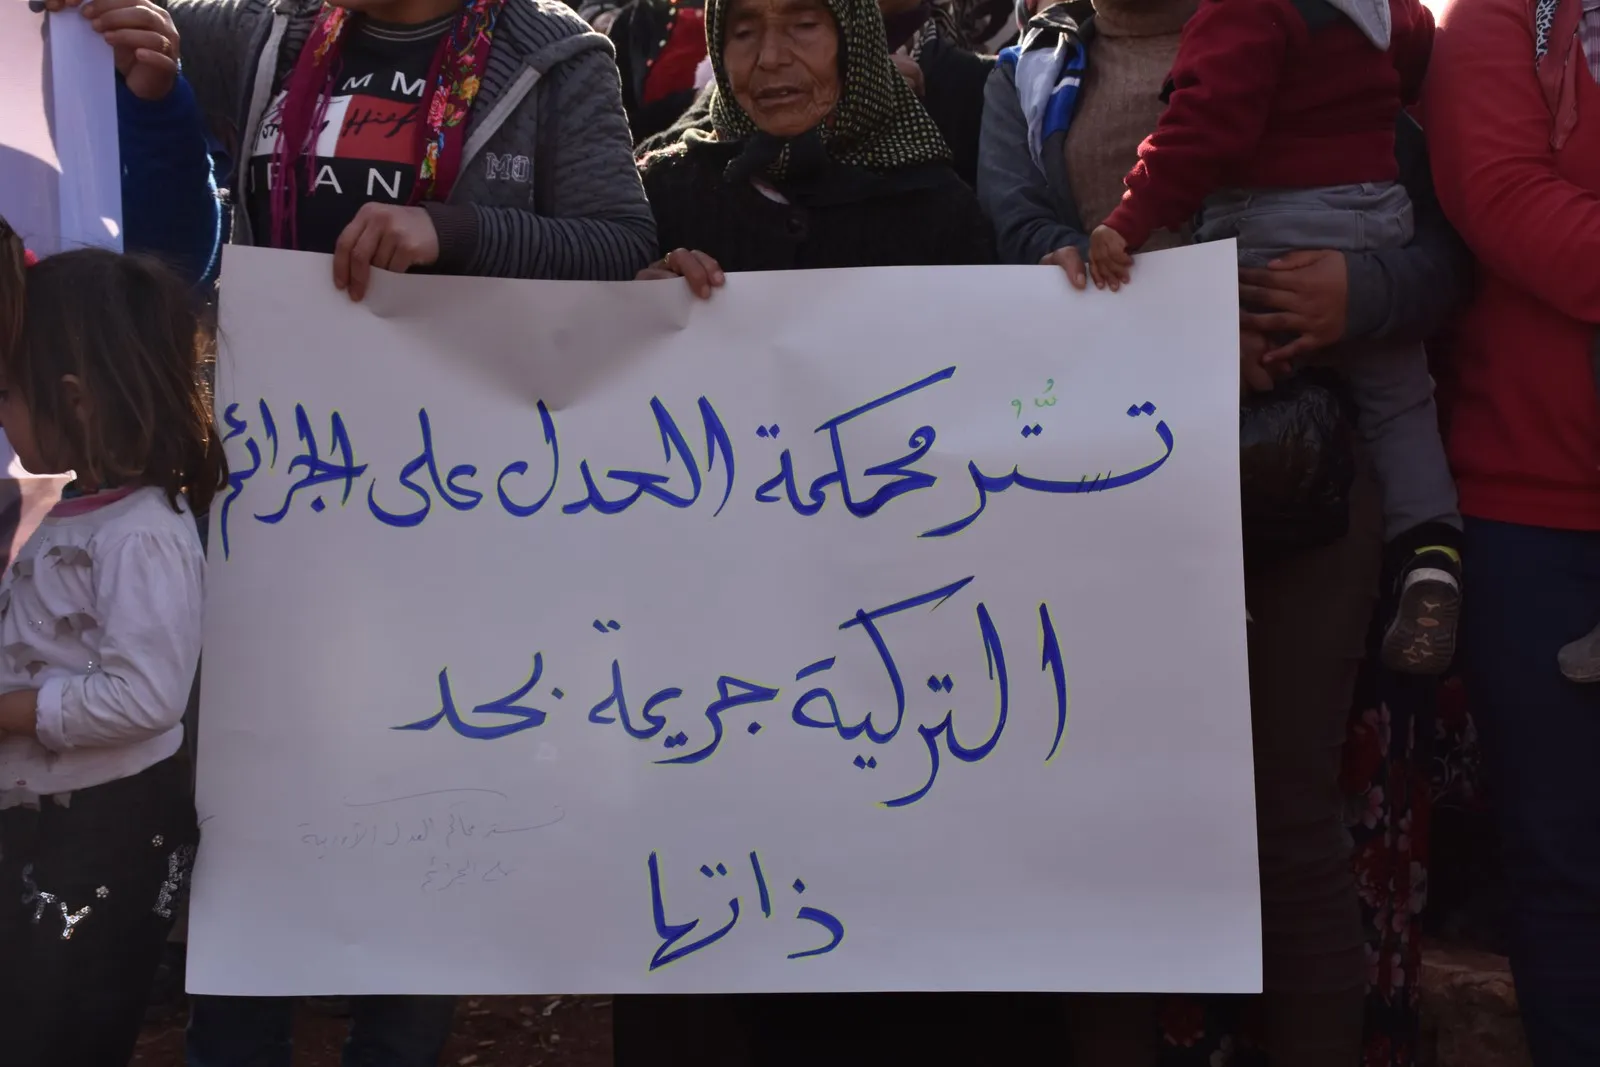 تستر محكمة العدل على الجرائم
التركية جريمة بحد
ذاتها
تستر محاكم العدل الأوروبية
على الجرائم